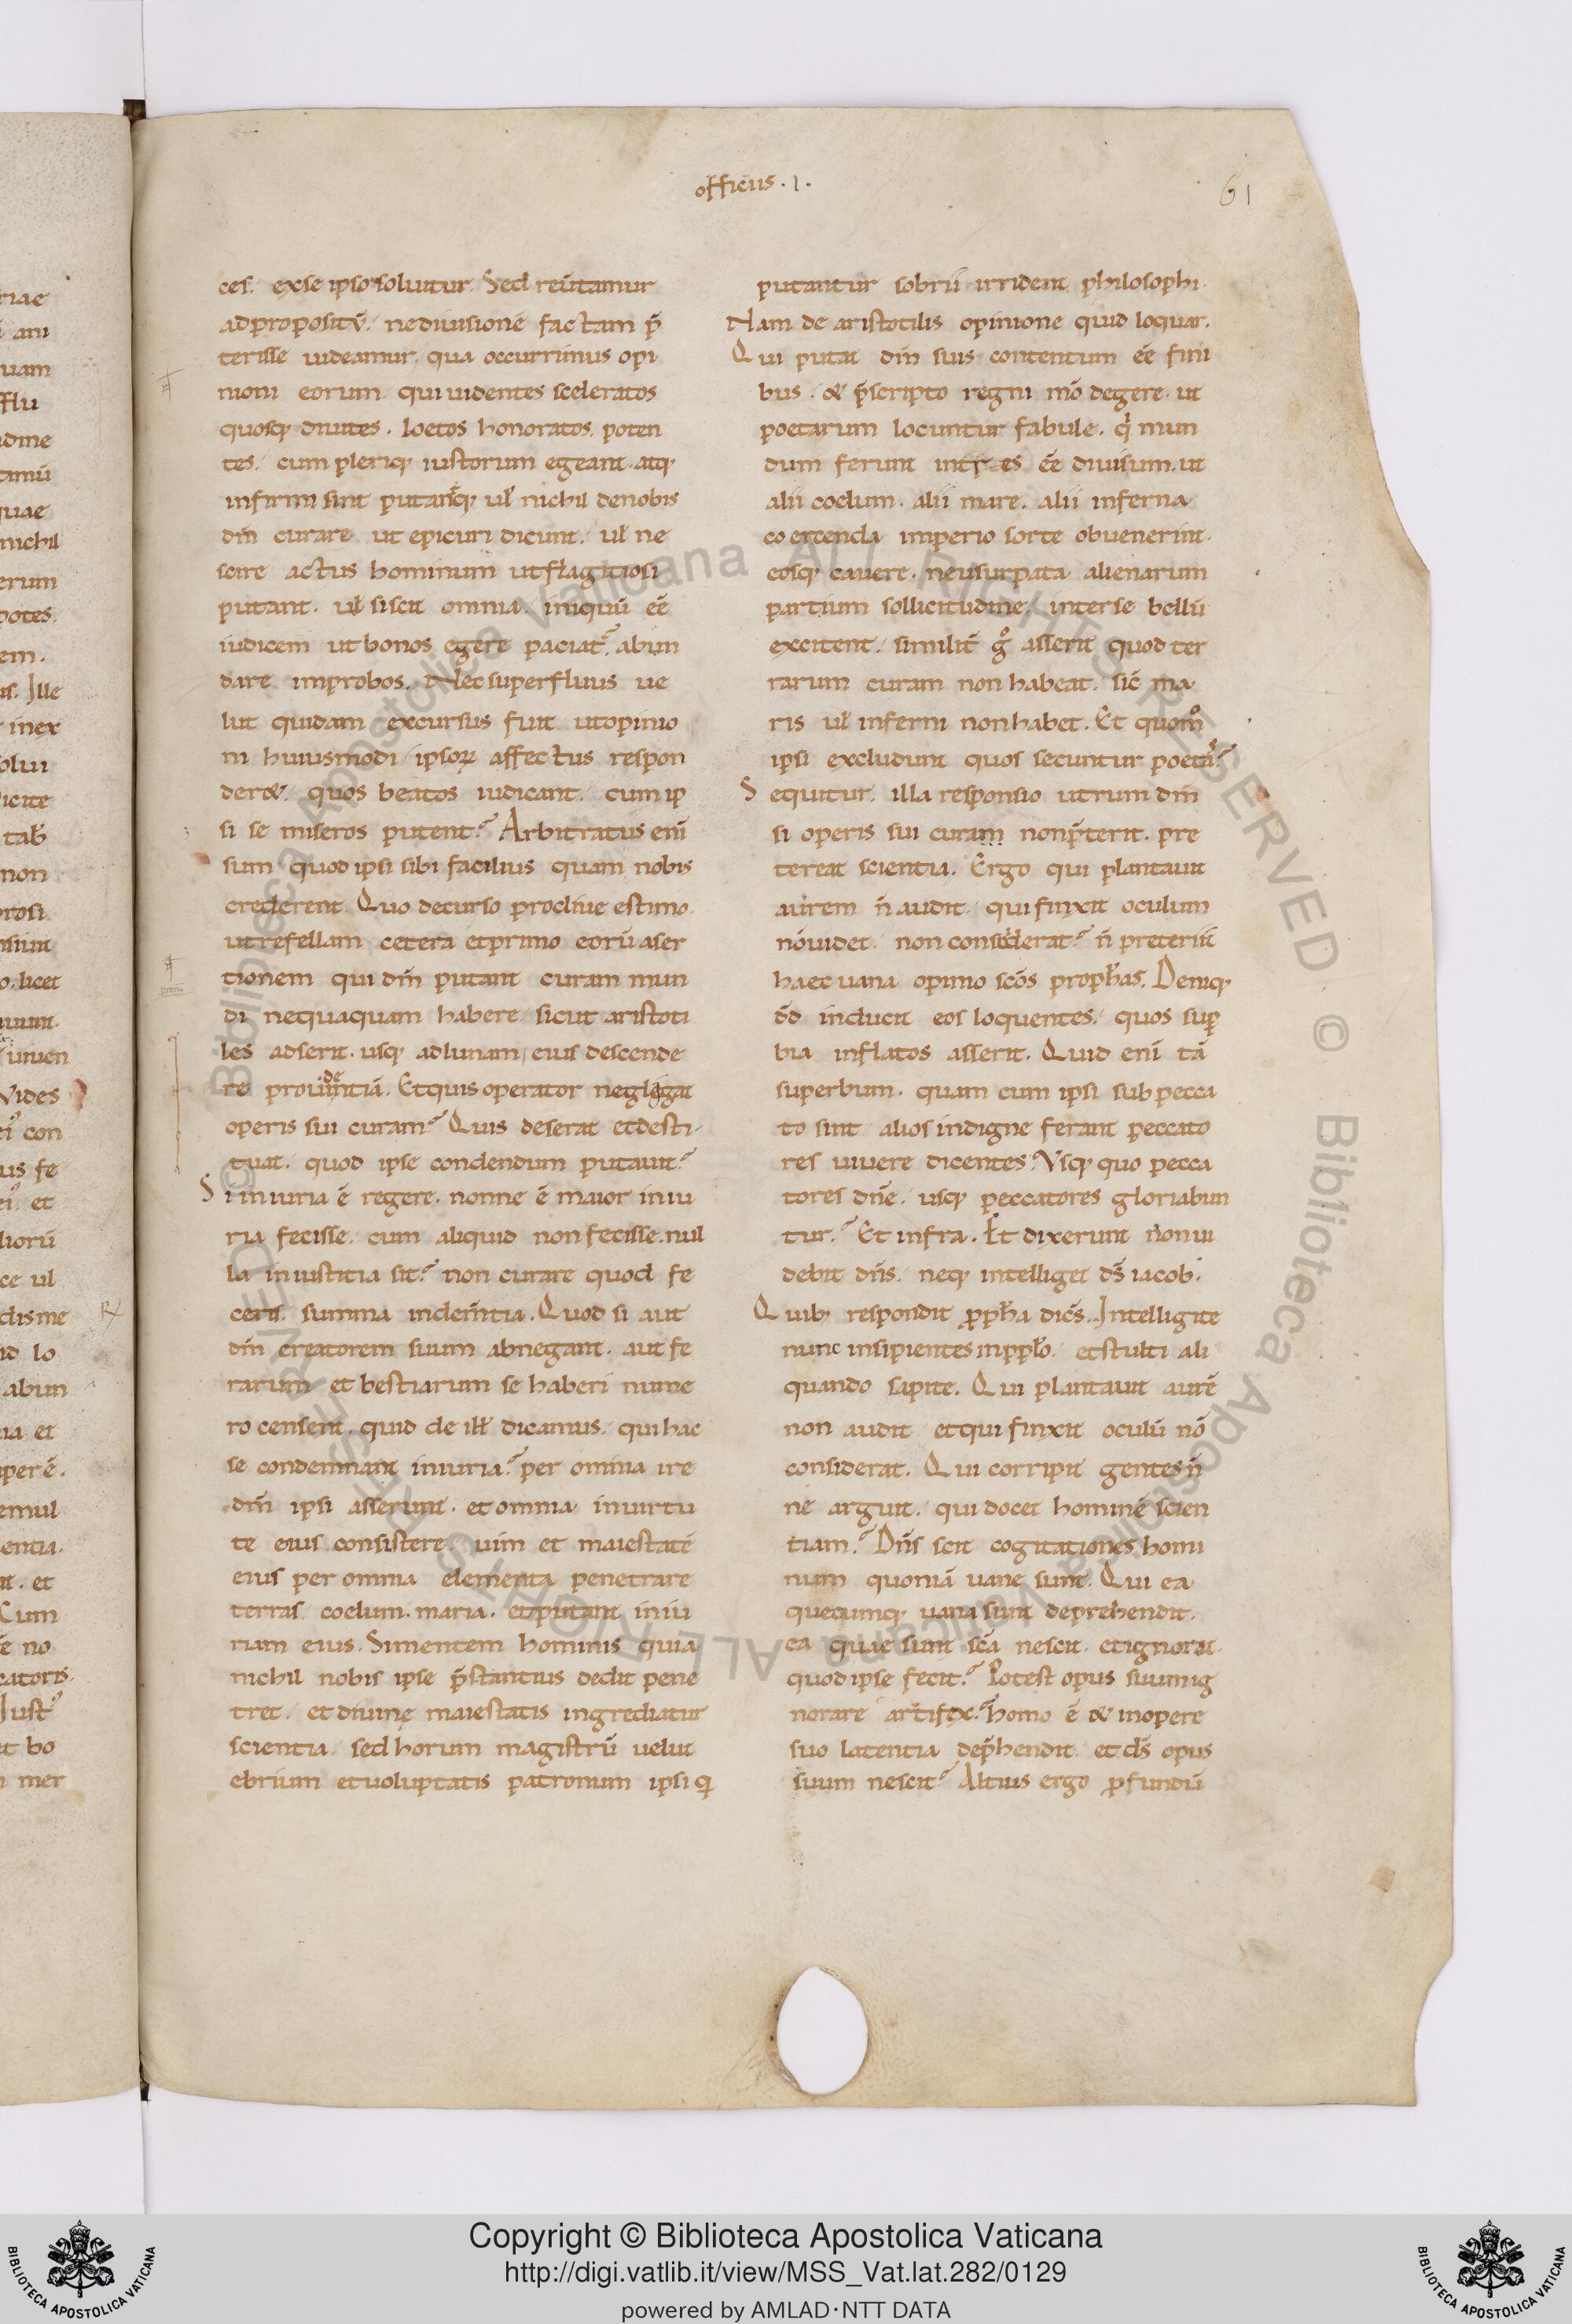 officiis . I .
61
ces. ex se ipso soluitur. Sed reuitamur
ad propositū. ne diuisionē factam p̄
terisse uideamur. qua occurrimus opi
nioni eorum qui uidentes sceleratos
quosq; diuites. loetos honoratos. poten
tes. cum pleriq; iustorum egeant. atq;
infirmi sint putantq; ul̄ nichil de nobis
dm̄ curare ut epicuri dicunt. ul̄ ne
scire actus hominum ut flagitiosi
putant. ul̄ si scit omnia. iniquū eē
iudicem ut bonos egere paciat̄. abun
dare improbos. Nec superfluus ue
lut quidam excursus fuit ut opinio
ni huiusmodi ipsoꝝ affectus respon
der&. quos beatos iudicant. cum ip
si se miseros putent? Arbitratus eni
sum quod ipsi sibi facilius quam nobis
crederent. Quo decurso procliue estimo.
ut refellam cetera et primo eorū aser
tionem qui dm̄ putant curam mun
di nequaquam habere sicut aristoti
les adserit. usq; ad lunam eius descende
re prouidentiā. Et quis operator negligat
operis sui curam? Quis deserat et desti
tuat. quod ipse condendum putauit?
Si iniuria ē regere. nonne ē maior iniu
ria fecisse. cum aliquid non fecisse. nul
la iniustitia sit? non curare quod fe
ceris. summa inclem̄tia. Quod si aut
dm̄ creatorem suum abnegant. aut fe
rarum et bestiarum se haberi nume
ro censent. quid de ill' dicamus. qui hac
se condemnant iniuria? per omnia ire
dm̄ ipsi asserunt. et omnia in uirtu
te eius consistere. uim et maiestatē
eius per omnia elementa penetrare
terras. coelum. maria. et putant iniu
riam eius. Si mentem hominis quia
nichil nobis ipse p̄stantius dedit pene
tret. et diuinę maiestatis ingrediatur
scientia. sed horum magistrū uelut
ebrium et uoluptatis patronum ipsi q̄
putantur sobrii irrident philosophi.
Nam de aristotilis opinione quid loquar.
Qui putat dm̄ suis contentum eē fini
bus. & p̄scripto regni mō degere. ut
poetarum locuntur fabule. q̄ mun
dum ferunt int̄ es eē diuisum. ut
alii coelum. alii mare. alii inferna
coercenda imperio sorte obuenerint.
eosq; cauere. ne usurpata alienarum
partium sollicitudine. inter se bellū
excitent. similit̄ g° asserit quod ter
rarum curam non habeat. sic̄ ma
ris ul̄ inferni non habet. Et quom°
ipsi excludunt quos secuntur poetas?
Sequitur. illa responsio utrum dm̄
si operis sui curam non p̄terit. pre
tereat scientia. Ergo qui plantauit
aurem n̄ audit. qui finxit oculum
nō uidet. non considerat? n̄ preteriit
haec uana opinio scōs proph'as. Deniq;
dd̄ inducit eos loquentes. quos sup̄
bia inflatos asserit. Quid eni tā
superbum. quam cum ipsi sub pecca
to sint alios indigne ferant peccato
res uiuere dicentes. Vsq; quo pecca
tores dnē. usq; peccatores gloriabun
tur? Et infra. Et dixerunt non ui
debit dn̄s. neq; intelliget ds̄ iacob.
Quib; respondit ꝓph'a dic̄s. Intelligite
nunc insipientes in ppl'o. et stulti ali
quando sapite. Qui plantauit aurē
non audit et qui finxit oculū nō
considerat. Qui corripit gentes n̄
ne arguit. qui docet hominē scien
tiam? Dn̄s scit cogitationes homi
num quoniā uane sunt. Qui ea
quecumq; uana sunt deprehendit.
ea quae sunt scā nescit. et ignorat.
quod ipse fecit? Potest opus suum ig
norare artifex? homo ē & in opere
suo latentia dep̄hendit. et ds̄ opus
suum nescit? Altius ergo ꝓfundū
Copyright © Biblioteca Apostolica Vaticana
http://digi.vatlib.it/view/MSS_Vat.lat.282/0129
powered by AMLAD·NTT DATA
BIBLIOTECA APOSTOLICA VATICANA
BIBLIOTECA APOSTOLICA VATICANA